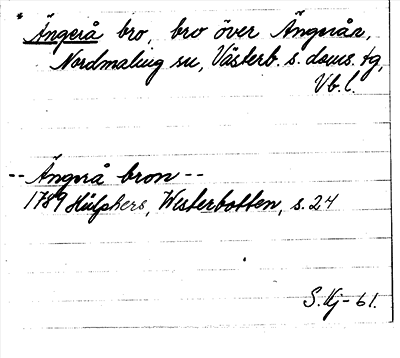 * Ängerå bro, bro över Ängerån,
Nordmaling sn, Västerb. s. doms. tg,
Vb. l.
-- Ängerå bron --
1789 Hülphers, Westerbotten, s. 24
S. Kj-61.